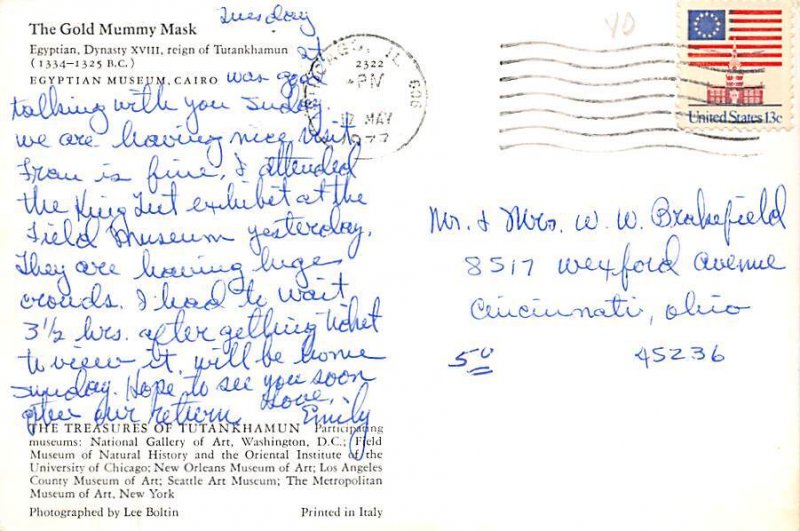 The Gold Mummy Mask
Egyptian, Dynasty XVIII, reign of Tutankhamun
(1334–1325 B.C.)
EGYPTIAN MUSEUM, CAIRO
Tuesday
It
was good
talking with you Sunday.
we are having nice visit.
Fran is fine. I attended
the King Tut exhibit at the
Field Museum yesterday.
They are having huge
crowds. I had to wait
3 1/2 hrs. after getting ticket
to view it. will be home
Sunday. Hope to see you soon
after our return.
Love,
Emily
THE TREASURES OF TUTANKHAMUN Participating
museums: National Gallery of Art, Washington, D.C.; Field
Museum of Natural History and the Oriental Institute of the
University of Chicago; New Orleans Museum of Art; Los Angeles
County Museum of Art; Seattle Art Museum; The Metropolitan
Museum of Art, New York
Photographed by Lee Boltin
Printed in Italy
CHICAGO, IL 606
2322
PM
17 MAY
1977
YD
United States 13c
Mr. & Mrs. W. W. Brakefield
8517 Wexford Avenue
Cincinnati, Ohio
45236
5 U